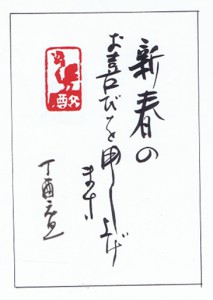 新春の
お喜びを申し上げ
ます
丁酉元旦